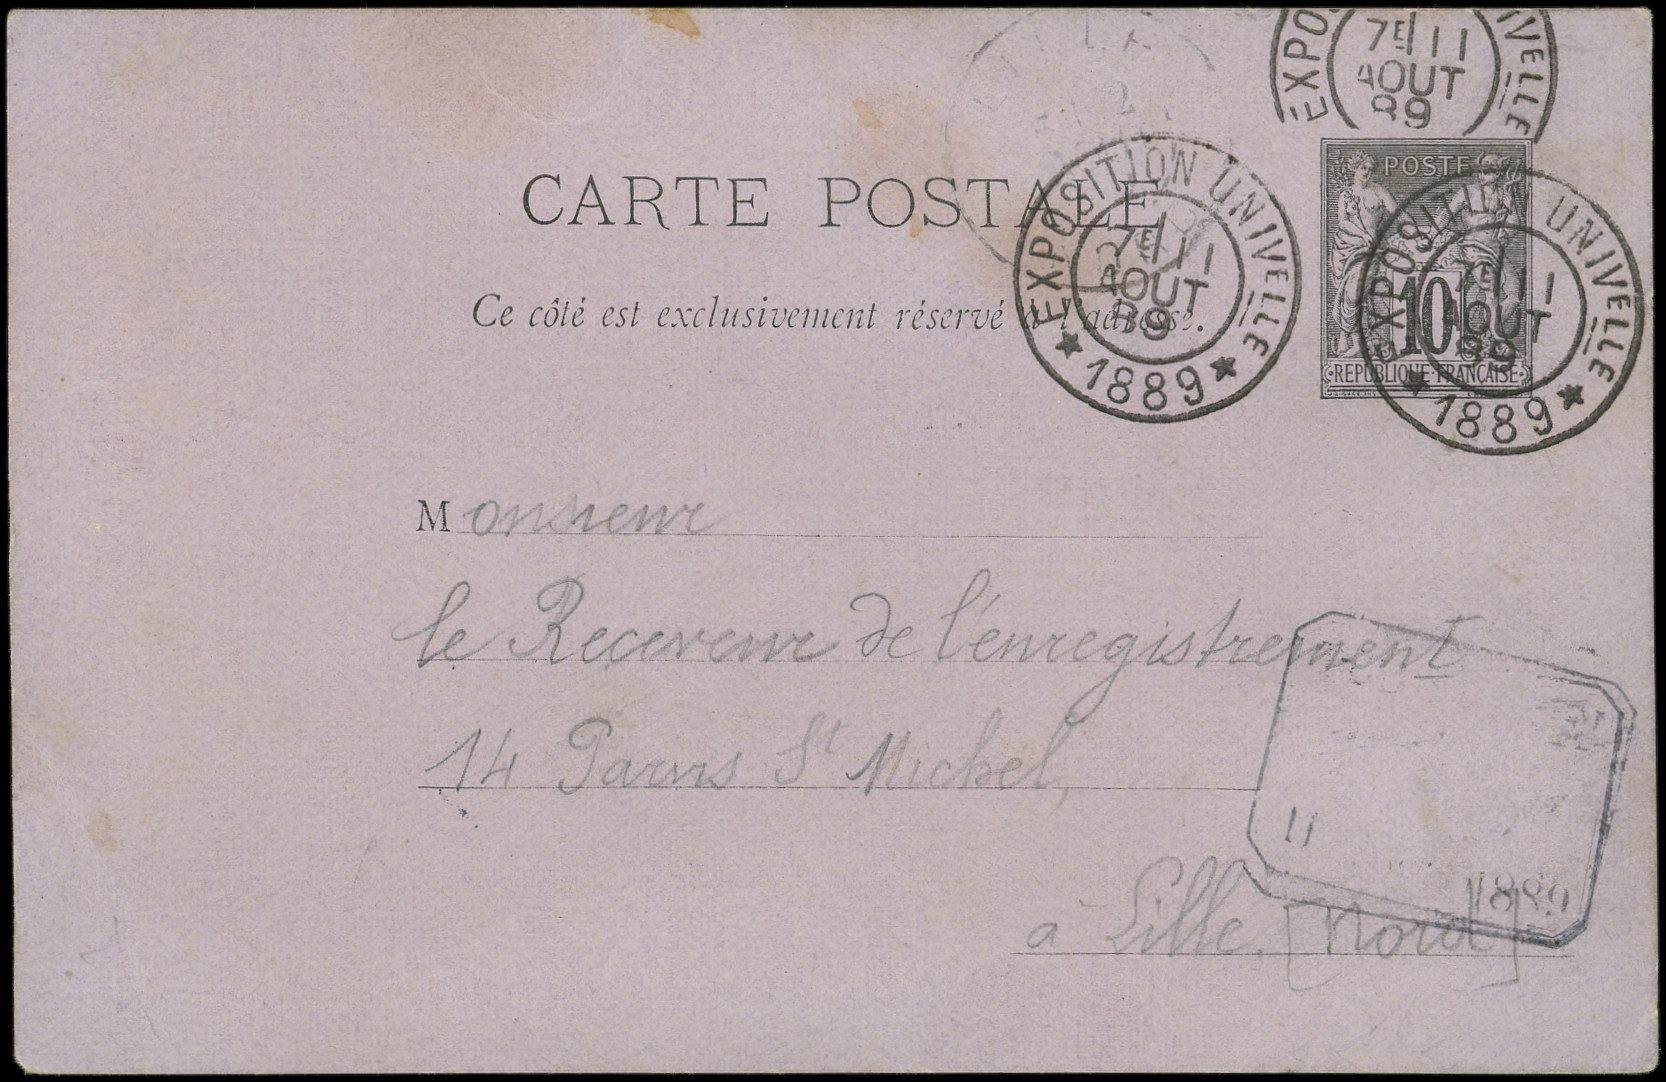 EXPO UNIVELLE
7E 11
AOUT
89
POSTE
10
REPUBLIQUE FRANÇAISE
CARTE POSTALE
EXPOSITION UNIVELLE
7E 11
AOUT
89
★ 1889 ★
EXPOSITION UNIVELLE
7E 11
AOUT
89
★ 1889 ★
Ce côté est exclusivement réservé à l'adresse.
Monsieur
le Receveur de l'enregistrement
14 Parvis St Michel,
11
1889
à Lille. [Nord]